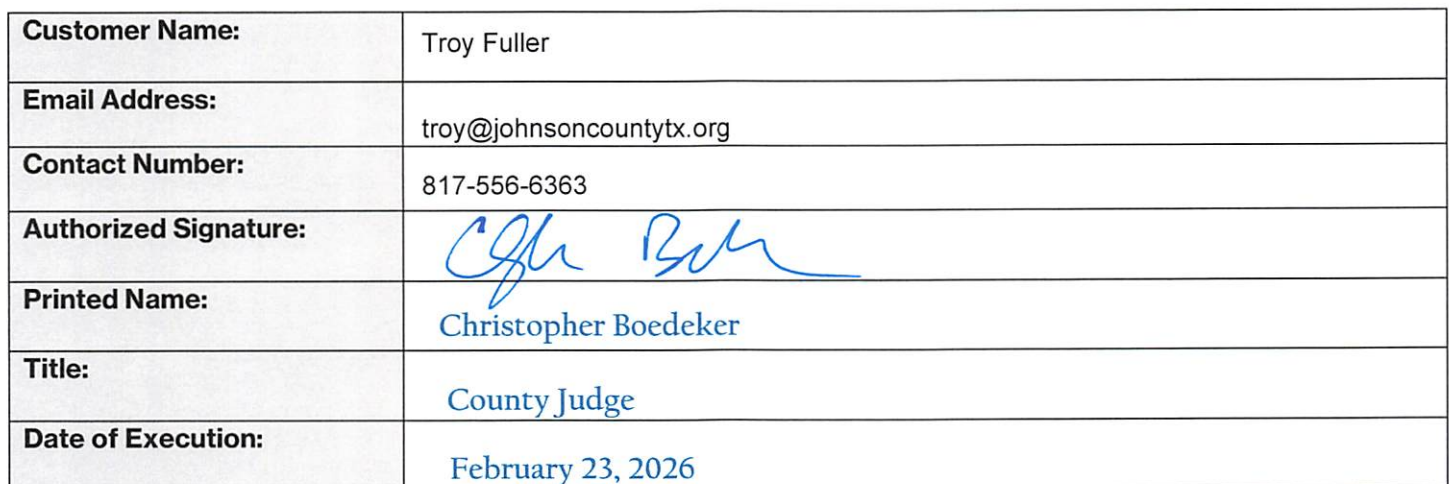 Customer Name: Troy Fuller
Email Address: troy@johnsoncountytx.org
Contact Number: 817-556-6363
Authorized Signature:
Printed Name: Christopher Boedeker
Title: County Judge
Date of Execution: February 23, 2026